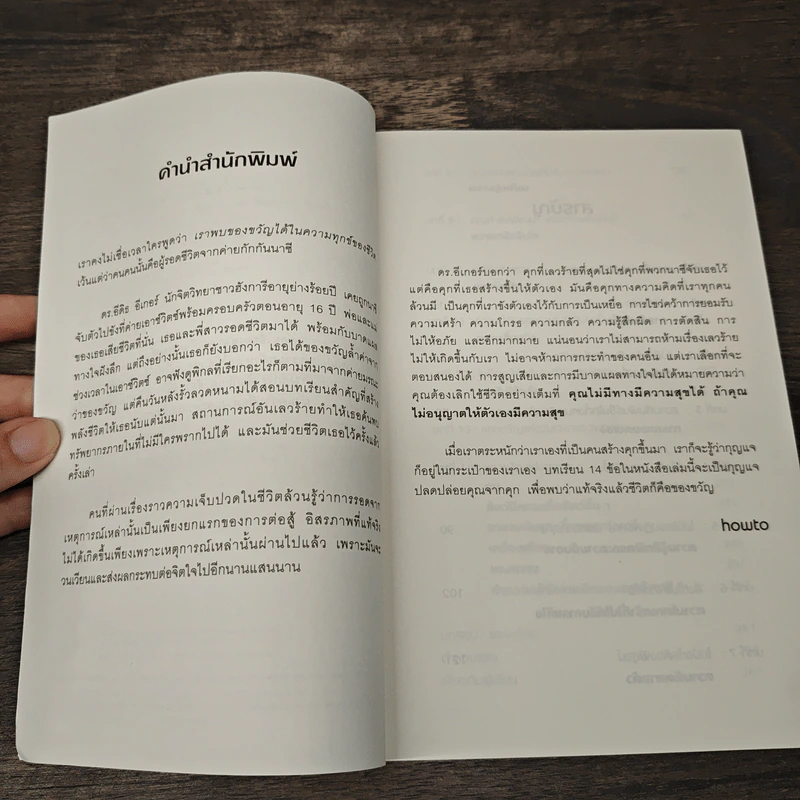 คำนำสำนักพิมพ์
เราคงไม่เชื่อเวลาใครพูดว่า เราพบของขวัญได้ในความทุกข์ของชีวิต
เว้นแต่ว่าคนคนนั้นคือผู้รอดชีวิตจากค่ายกักกันนาซี
ดร.อีดิธ อีเกอร์ นักจิตวิทยาชาวฮังการีอายุย่างร้อยปี เคยถูกนาซี
จับตัวไปขังที่ค่ายเอาช์วิตซ์พร้อมครอบครัวตอนอายุ 16 ปี พ่อและแม่
ของเธอเสียชีวิตที่นั่น เธอและพี่สาวรอดชีวิตมาได้ พร้อมกับบาดแผล
ทางใจฝังลึก แต่ถึงอย่างนั้นเธอก็ยังบอกว่า เธอได้ของขวัญล้ำค่าจาก
ช่วงเวลาในเอาช์วิตซ์ อาจฟังดูพิกลที่เรียกอะไรก็ตามที่มาจากค่ายมรณะ
ว่าของขวัญ แต่คืนวันหลังรั้วลวดหนามได้สอนบทเรียนสำคัญที่สร้าง
พลังชีวิตให้เธอนับแต่นั้นมา สถานการณ์อันเลวร้ายทำให้เธอค้นพบ
ทรัพยากรภายในที่ไม่มีใครพรากไปได้ และมันช่วยชีวิตเธอไว้ครั้งแล้ว
ครั้งเล่า
คนที่ผ่านเรื่องราวความเจ็บปวดในชีวิตล้วนรู้ว่าการรอดจาก
เหตุการณ์เหล่านั้นเป็นเพียงยกแรกของการต่อสู้ อิสรภาพที่แท้จริง
ไม่ได้เกิดขึ้นเพียงเพราะเหตุการณ์เหล่านั้นผ่านไปแล้ว เพราะมันจะ
วนเวียนและส่งผลกระทบต่อจิตใจไปอีกนานแสนนาน
ดร.อีเกอร์บอกว่า คุกที่เลวร้ายที่สุดไม่ใช่คุกที่พวกนาซีจับเธอไว้
แต่คือคุกที่เธอสร้างขึ้นให้ตัวเอง มันคือคุกทางความคิดที่เราทุกคน
ล้วนมี เป็นคุกที่เราขังตัวเองไว้กับการเป็นเหยื่อ การไขว่คว้าการยอมรับ
ความเศร้า ความโกรธ ความกลัว ความรู้สึกผิด การตัดสิน การ
ไม่ให้อภัย และอีกมากมาย แน่นอนว่าเราไม่สามารถห้ามเรื่องเลวร้าย
ไม่ให้เกิดขึ้นกับเรา ไม่อาจห้ามการกระทำของคนอื่น แต่เราเลือกที่จะ
ตอบสนองได้ การสูญเสียและการมีบาดแผลทางใจไม่ได้หมายความว่า
คุณต้องเลิกใช้ชีวิตอย่างเต็มที่ คุณไม่มีทางมีความสุขได้ ถ้าคุณ
ไม่อนุญาตให้ตัวเองมีความสุข
เมื่อเราตระหนักว่าเราเองที่เป็นคนสร้างคุกขึ้นมา เราก็จะรู้ว่ากุญแจ
ก็อยู่ในกระเป๋าของเราเอง บทเรียน 14 ข้อในหนังสือเล่มนี้จะเป็นกุญแจ
ปลดปล่อยคุณจากคุก เพื่อพบว่าแท้จริงแล้วชีวิตก็คือของขวัญ
howto